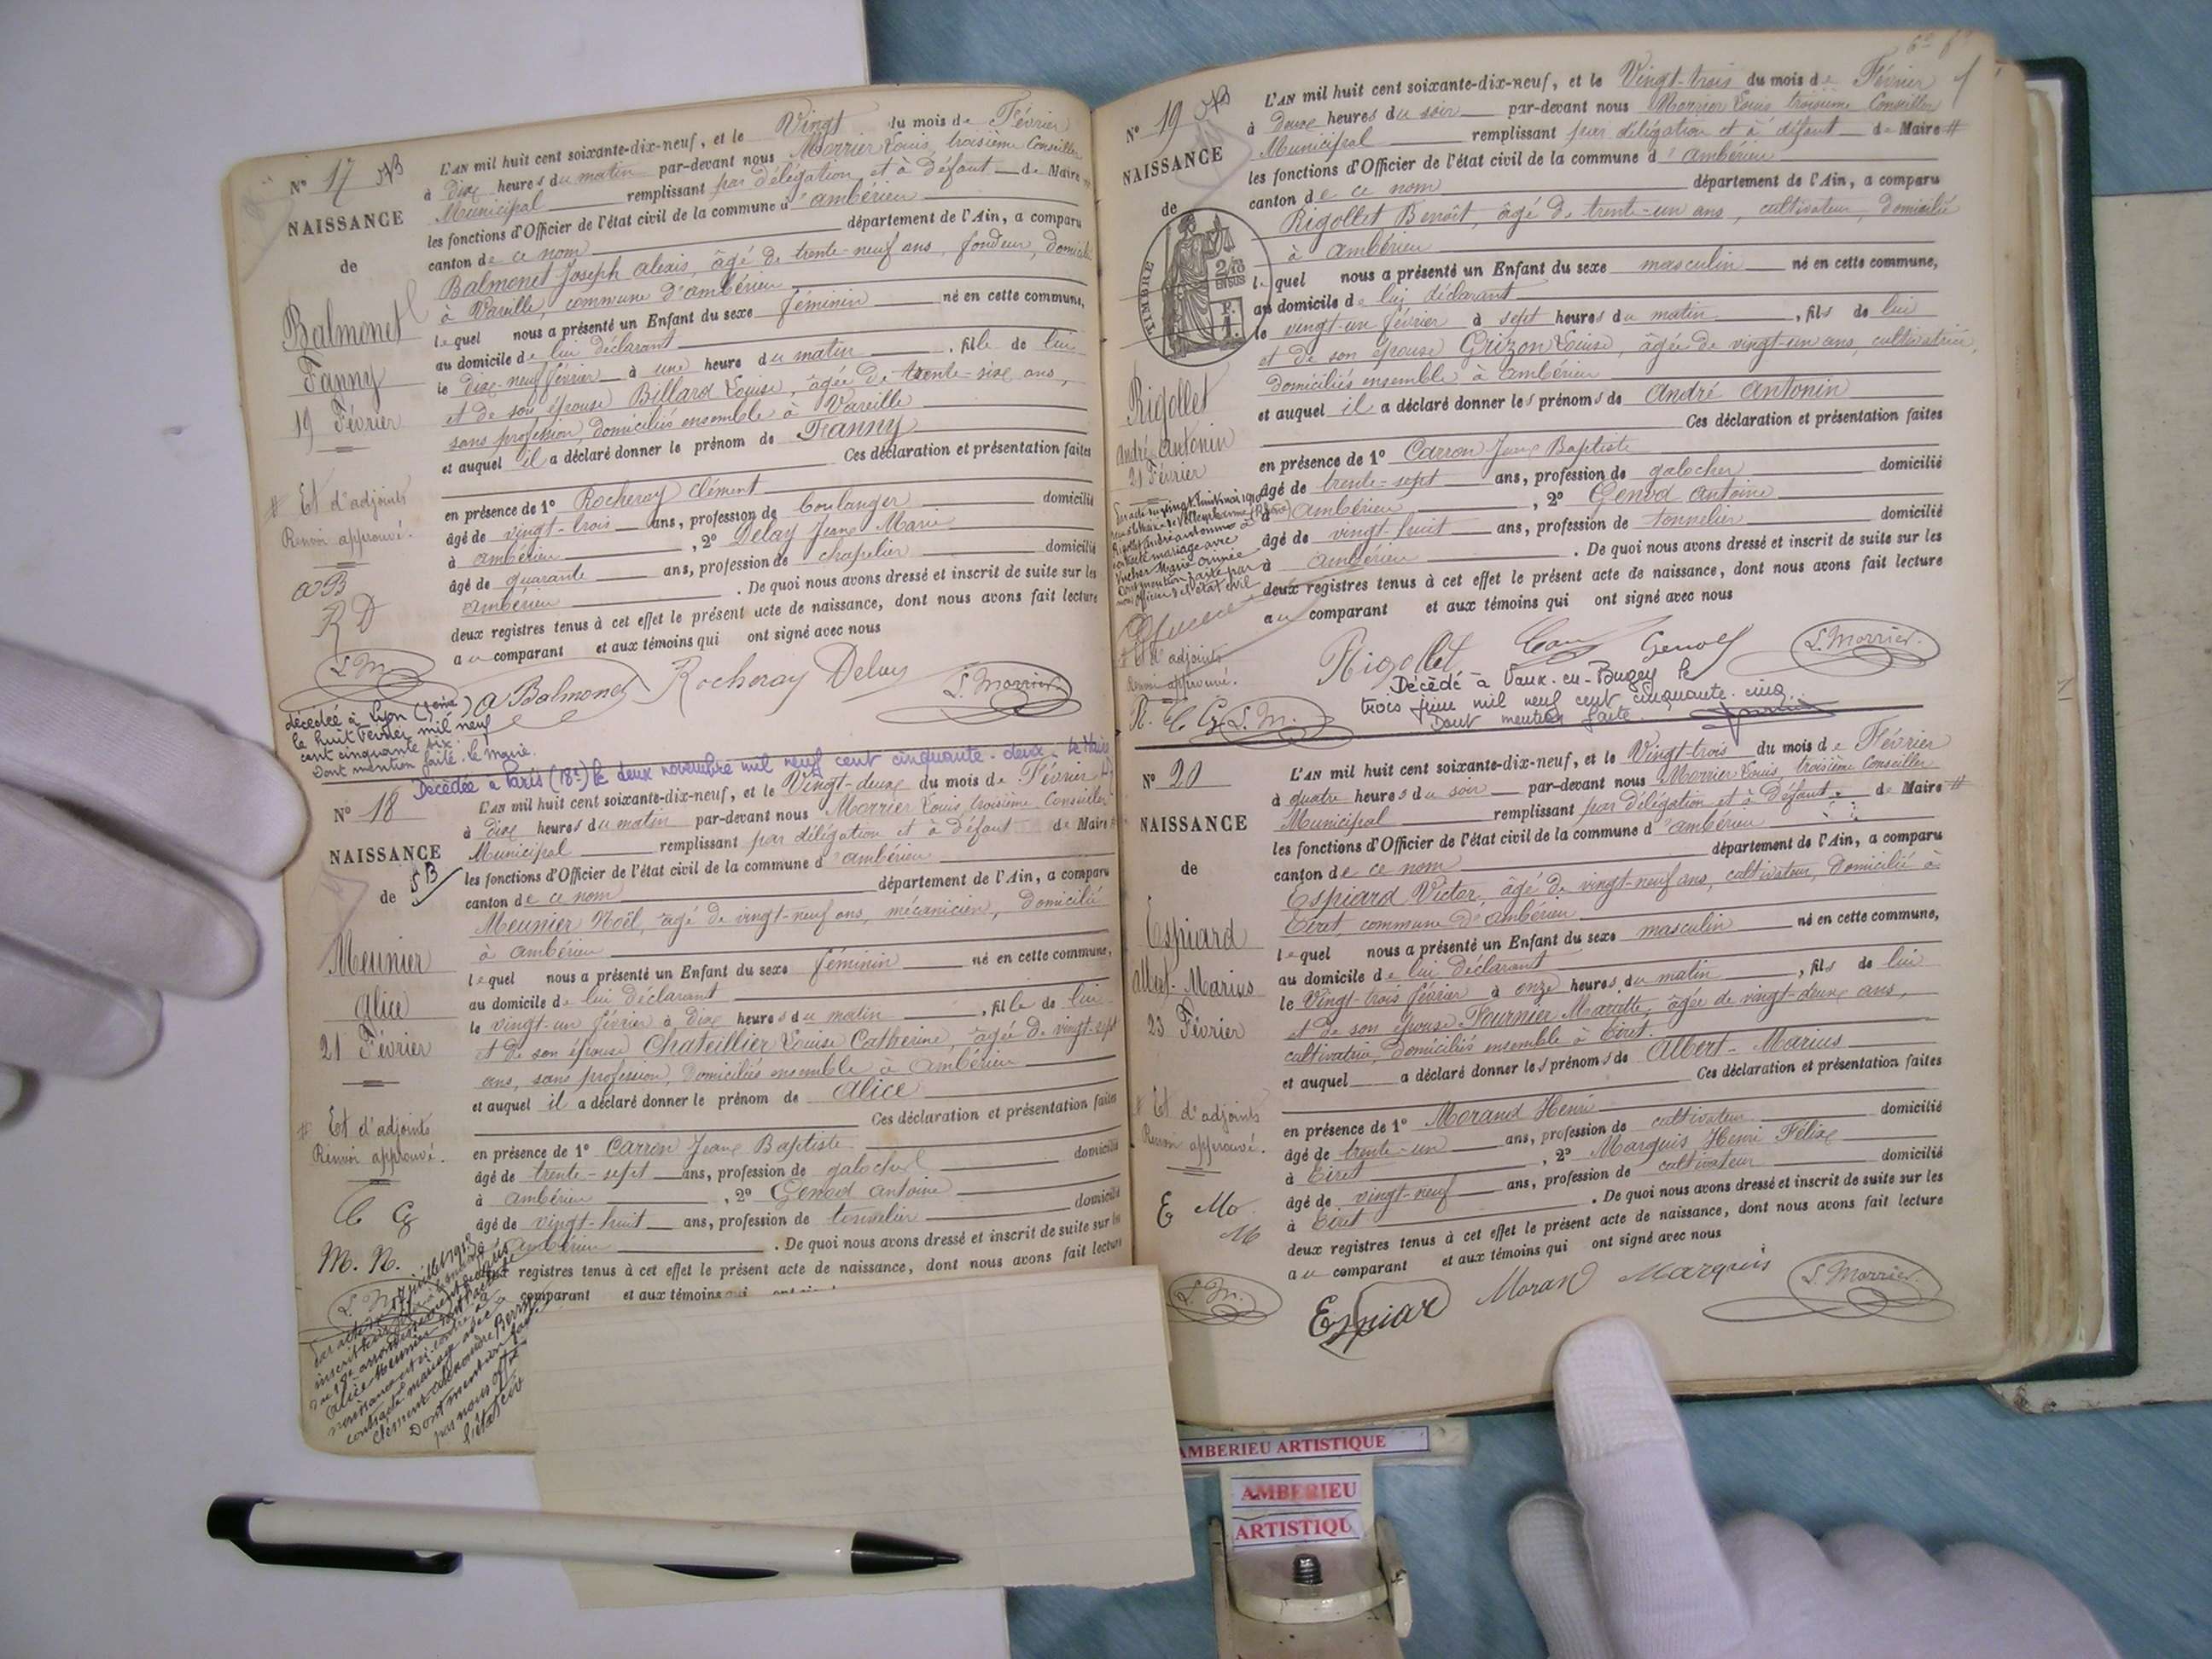 N° 17
NAISSANCE
de
Balmonet
Fanny
19 Février
# Et d'adjoints
Renvoi approuvé.
aB
R D
L. M.
L'AN mil huit cent soixante-dix-neuf, et le Vingt du mois de Février
à dix heures du matin par-devant nous Morrier Louis, troisième Conseiller
Municipal remplissant par délégation et à défaut de Maire #
les fonctions d'Officier de l'état civil de la commune d'ambérieu
canton de ce nom département de l'Ain, a comparu
Balmonet Joseph alexis, âgé de trente-neuf ans, fondeur, domicilié
à Vareille, commune d'ambérieu
lequel nous a présenté un Enfant du sexe féminin né en cette commune,
au domicile de lui déclarant
le dix-neuf février à une heure du matin, fille de lui
et de son épouse Billard Louise, âgée de trente-six ans,
sans profession, domiciliés ensemble à Vareille
et auquel il a déclaré donner le prénom de Fanny
Ces déclaration et présentation faites
en présence de 1° Rocheray Clément
âgé de vingt-trois ans, profession de boulanger domicilié
à ambérieu, 2° Delay Jean Marie
âgé de quarante ans, profession de chapelier domicilié
ambérieu. De quoi nous avons dressé et inscrit de suite sur les
deux registres tenus à cet effet le présent acte de naissance, dont nous avons fait lecture
au comparant et aux témoins qui ont signé avec nous
a Balmonet Rocheray Delay L. Morrier
décédée à Lyon
le huit Février mil neuf
cent cinquante six.
Dont mention faite. le maire.
Décédée à Paris (18e) le deux novembre mil neuf cent cinquante-deux. Le Maire
N° 18
NAISSANCE
de
Meunier
Alice
21 Février
# Et d'adjoints
Renvoi approuvé.
C G
M. N.
L'AN mil huit cent soixante-dix-neuf, et le Vingt-deux du mois de Février
à dix heures du matin par-devant nous Morrier Louis, troisième Conseiller
Municipal remplissant par délégation et à défaut de Maire #
les fonctions d'Officier de l'état civil de la commune d'ambérieu
canton de ce nom département de l'Ain, a comparu
Meunier Noël, âgé de vingt-neuf ans, mécanicien, domicilié
à ambérieu
lequel nous a présenté un Enfant du sexe féminin né en cette commune,
au domicile de lui déclarant
le vingt-un février à dix heures du matin, fille de lui
et de son épouse Chateillier Louise Catherine, âgée de vingt-sept
ans, sans profession, domiciliés ensemble à ambérieu
et auquel il a déclaré donner le prénom de alice
Ces déclaration et présentation faites
en présence de 1° Carron Jean Baptiste
âgé de trente-sept ans, profession de galocher domicilié
à ambérieu, 2° Genod antoine
âgé de vingt-huit ans, profession de tonnelier domicilié
ambérieu. De quoi nous avons dressé et inscrit de suite sur les
registres tenus à cet effet le présent acte de naissance, dont nous avons fait lecture
comparant et aux témoins qui
Dont mention faite
par nous off
l'état civ
N° 19
NAISSANCE
de
TIMBRE
2/10
EN SUS
Rigollet
André Antonin
21 Février
# Et d'adjoints
Renvoi approuvé.
R. C G L. M.
L'AN mil huit cent soixante-dix-neuf, et le Vingt-trois du mois de Février
à deux heures du soir par-devant nous Morrier Louis troisième Conseiller
Municipal remplissant par délégation et à défaut de Maire #
les fonctions d'Officier de l'état civil de la commune d'ambérieu
canton de ce nom département de l'Ain, a comparu
Rigollet Benoît, âgé de trente-un ans, cultivateur, domicilié
à ambérieu
lequel nous a présenté un Enfant du sexe masculin né en cette commune,
au domicile de lui déclarant
le vingt-un février à sept heures du matin, fils de lui
et de son épouse Grizon Louise, âgée de vingt-un ans, cultivatrice,
domiciliés ensemble à ambérieu
et auquel il a déclaré donner les prénoms de André Antonin
Ces déclaration et présentation faites
en présence de 1° Carron Jean Baptiste
âgé de trente-sept ans, profession de galocher domicilié
à ambérieu, 2° Genod antoine
âgé de vingt huit ans, profession de tonnelier domicilié
à ambérieu. De quoi nous avons dressé et inscrit de suite sur les
deux registres tenus à cet effet le présent acte de naissance, dont nous avons fait lecture
au comparant et aux témoins qui ont signé avec nous
Rigollet Genod L. Morrier
Décédé à Vaux-en-Bugey le
trois juin mil neuf cent cinquante-cinq
Dont mention faite.
N° 20
NAISSANCE
de
Espiard
Albert-Marius
23 Février
# Et d'adjoints
Renvoi approuvé.
E Mo
M
L. M.
L'AN mil huit cent soixante-dix-neuf, et le Vingt-trois du mois de Février
à quatre heures du soir par-devant nous Morrier Louis, troisième Conseiller
Municipal remplissant par délégation et à défaut de Maire #
les fonctions d'Officier de l'état civil de la commune d'ambérieu
canton de ce nom département de l'Ain, a comparu
Espiard Victor, âgé de vingt-neuf ans, cultivateur, domicilié à
Tiret, commune d'ambérieu
lequel nous a présenté un Enfant du sexe masculin né en cette commune,
au domicile de lui déclarant
le Vingt-trois février à onze heures du matin, fils de lui
et de son épouse Fournier Mariette, âgée de vingt-deux ans,
cultivatrice, domiciliés ensemble à Tiret.
et auquel a déclaré donner les prénoms de Albert-Marius
Ces déclaration et présentation faites
en présence de 1° Morand Henri
âgé de trente-un ans, profession de cultivateur domicilié
à Tiret, 2° Marquis Henri Félix
âgé de vingt-neuf ans, profession de cultivateur domicilié
à Tiret. De quoi nous avons dressé et inscrit de suite sur les
deux registres tenus à cet effet le présent acte de naissance, dont nous avons fait lecture
au comparant et aux témoins qui ont signé avec nous
Espiard Moran Marquis L. Morrier
AMBERIEU ARTISTIQUE
AMBERIEU
ARTISTIQU